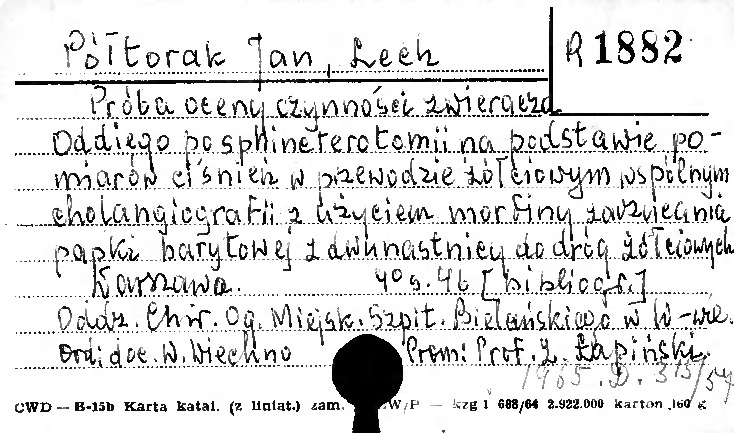 Półtorak Jan, Lech R 1882
Próba oceny czynności zwieracza
Oddiego po sphincterotomii na podstawie po-
miarów ciśnień w przewodzie żółciowym wspólnym
cholangiografii z użyciem morfiny zarzucania
papki barytowej z dwunastnicy do dróg żółciowych
Warszawa. 40 s. 46 [bibliogr.]
Oddz. Chir. Og. Miejsk. Szpit. Bielańskiego w W-wie.
Ord: doc. W. Wiechno Prom: Prof. Z. Łapiński.
1965. D. 315/57
CWD — B-15b Karta katal. (z liniat.) zam. W/P — kzg 1 688/64 2.922.000 karton 160 g